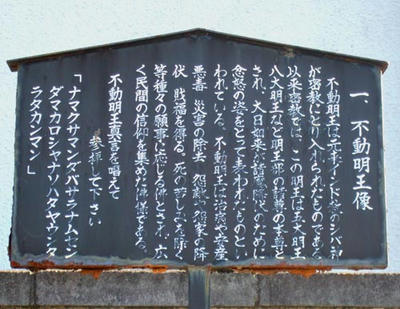 一、不動明王像
不動明王は元来インド教のシバ神
が密教にとり入れられたものである
以来密教では、この明王は五大明王
八大明王など明王部の諸尊の主尊と
され、大日如来が諸悪降伏のために
忿怒の姿をとって表われたものとい
われている。不動明王は治病や安産
悪毒 災害の除去 怨敵、怨家の降
伏 財福を得る。死の苦しみを除く
等種々の願事に応じる佛とされ、広
く民間の信仰を集めた佛様である。
不動明王真言を唱えて
参拝して下さい
「ナマクサマンダバサラナムセン
ダマカロシャナソハタヤウンタ
ラタカンマン」